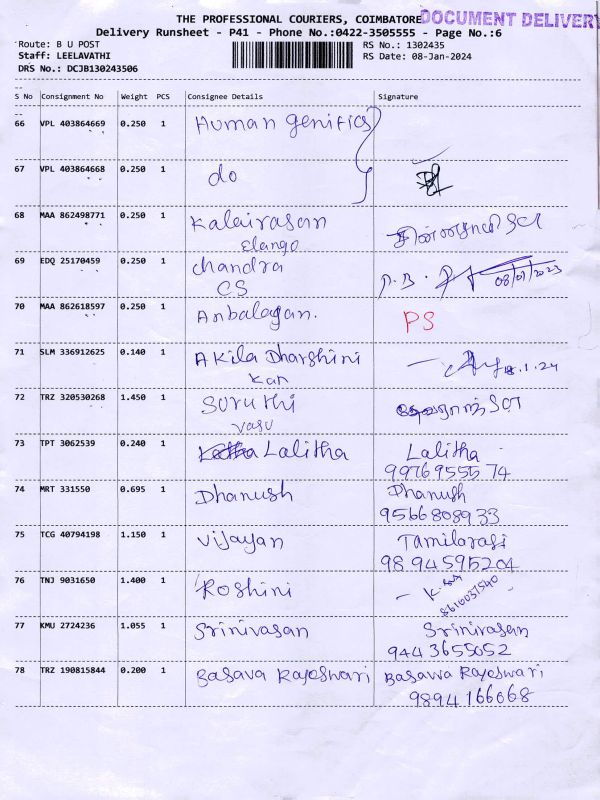 THE PROFESSIONAL COURIERS, COIMBATORE
DOCUMENT DELIVERY
Delivery Runsheet - P41 - Phone No.:0422-3505555 - Page No.:6
Route: B U POST
RS No.: 1302435
Staff: LEELAVATHI
RS Date: 08-Jan-2024
DRS No.: DCJB130243506
S No Consignment No Weight PCS Consignee Details Signature
66 VPL 403864669 0.250 1 Human genitics
67 VPL 403864668 0.250 1 do
68 MAA 862498771 0.250 1 Kalairasan
Elango
69 EDQ 25170459 0.250 1 Chandra
CS
08/01/2023
70 MAA 862618597 0.250 1 Anbalagan. PS
71 SLM 336912625 0.140 1 Akila Dharshini
72 TRZ 320530268 1.450 1 Suruthi
vasu
73 TPT 3062539 0.240 1 Lalitha Lalitha
99769555 74
74 MRT 331550 0.695 1 Dhanush Dhanush
9566808933
75 TCG 40794198 1.150 1 Vijayan Tamilarasi
9894595204
76 TNJ 9031650 1.400 1 Roshini
77 KMU 2724236 1.055 1 Srinivasan Srinivasan
9443655052
78 TRZ 190815844 0.200 1 Basava Rajeswari Basavva Rajeswari
9894166068